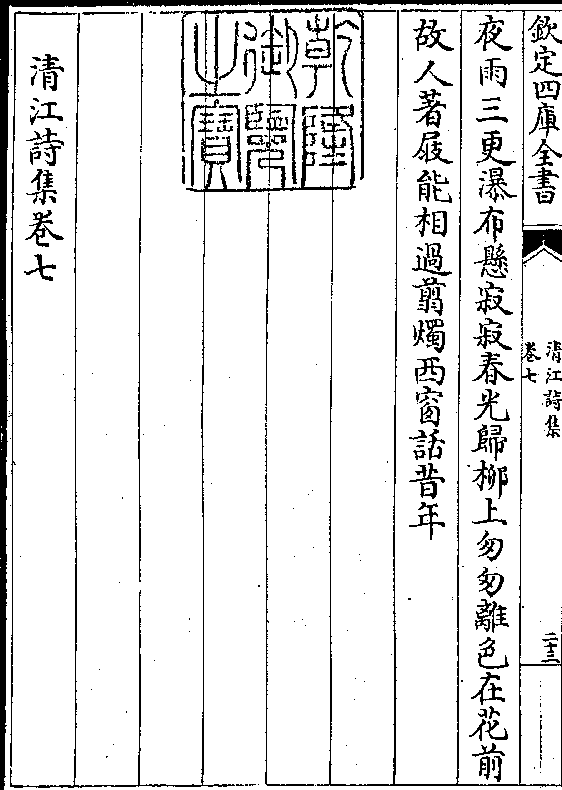 欽定四庫全書
清江詩集
卷七
二十三
夜雨三更瀑布懸寂寂春光歸柳上匆匆離色在花前
故人著屐能相過翦燭西窗話昔年
乾隆御覽之寶
清江詩集卷七